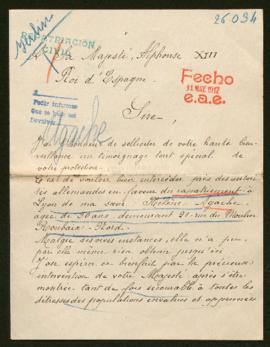 26.094
REPATRIACIÓN
CIVIL
A Sa Majesté Alphonse XIII
Roi d'Espagne
Fecho
11 MAY. 1917
e.a.e.
Pedir informes
Agache
Sire,
J'ai l'honneur de solliciter de votre haute bien-
veillance un témoignage tout spécial de
votre protection.
de vouloir bien intercéder près des autori-
tés allemandes en faveur du rapatriement à
Lyon de ma sœur Hélène Agache,
âgée de 36 ans, demeurant 21 rue du Moulin
Roubaix - Nord.
Malgré ses vives instances, elle n'a pu
par elle même rien obtenir jusqu'ici
J'ose espérer le bienfait de la précieuse
intervention de votre Majesté après s'être
montrée tant de fois secourable à toutes les
détresses des populations envahies et opprimées